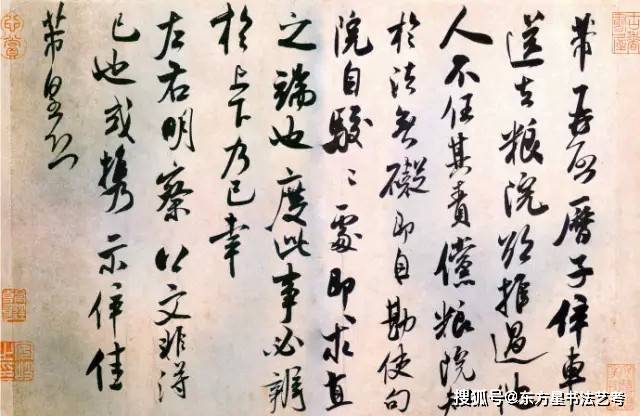 芾再啓曆子併專
送去粮院欲推過他
人不任其責儻粮院
於法無礙即自勘使句
院自駮〻處即求直
之端也度此事必辨
於上下乃已幸
左右明察以文非淂
已也或携示併佳
芾皇恐
搜狐号@东方星书法艺考